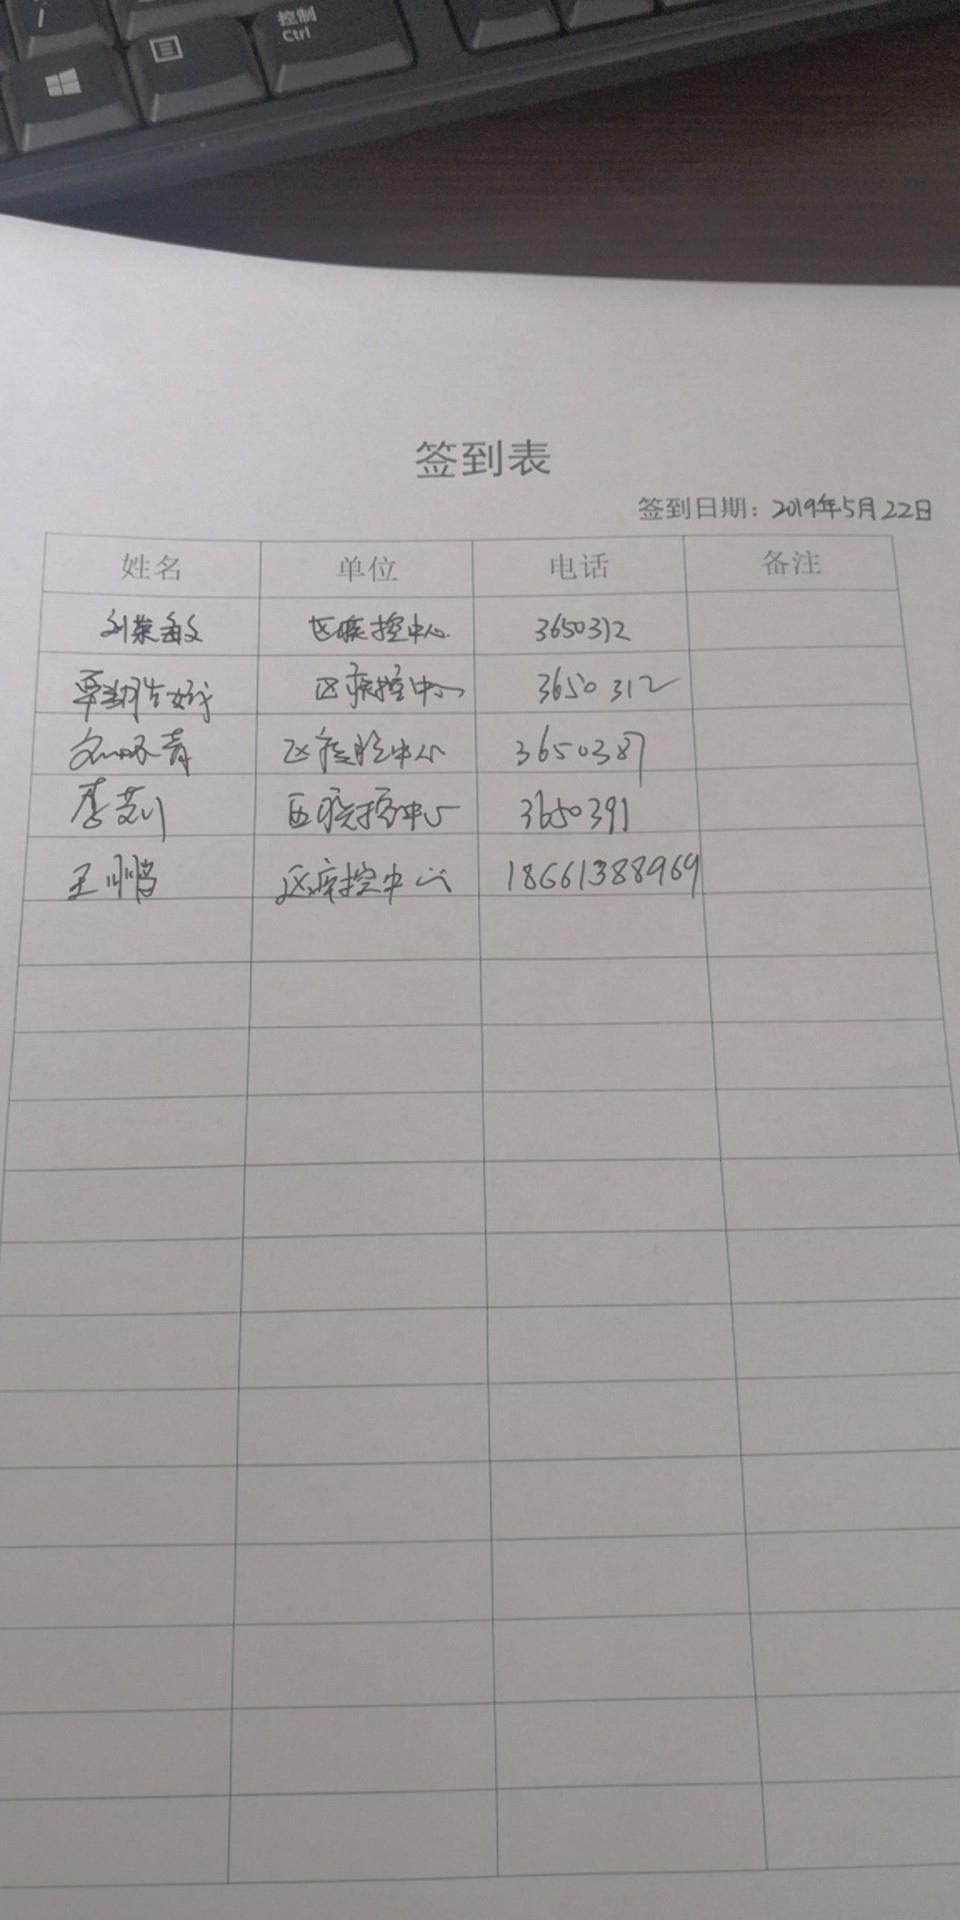 控制
Ctrl
签到表
签到日期：2019年5月22日
姓名 单位 电话 备注
刘荣敏 区疾控中心 3650312
区疾控中心 3650312
青 区疾控中心 3650387
李 区疾控中心 3650391
王鹏 区疾控中心 18661388969